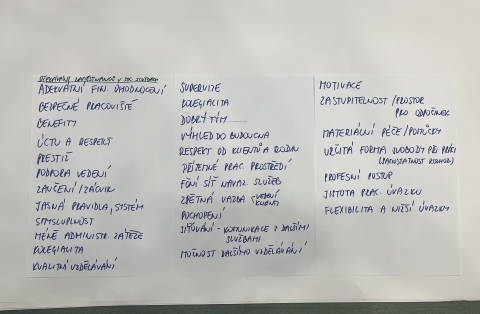 OČEKÁVÁNÍ ZAMĚSTNANCŮ V SOC. SLUŽBÁCH
ADEKVÁTNÍ FIN. OHODNOCENÍ
BEZPEČNÉ PRACOVIŠTĚ
BENEFITY
ÚCTU A RESPEKT
PRESTIŽ
PODPORA VEDENÍ
ZAUČENÍ / ZÁCVIK
JASNÁ PRAVIDLA, SYSTÉM
SMYSLUPLNOST
MÉNĚ ADMINISTR. ZÁTĚŽE
KOLEGIALITA
KVALITNÍ VZDĚLÁVÁNÍ
SUPERVIZE
KOLEGIALITA
DOBRÝ TÝM
VÝHLED DO BUDOUCNA
RESPEKT OD KLIENTŮ A RODIN
PŘÍJEMNÉ PRAC. PROSTŘEDÍ
FČNÍ SÍŤ NÁVAZ. SLUŽEB
ZPĚTNÁ VAZBA - VEDENÍ
KLIENTI
POCHOPENÍ
SÍŤOVÁNÍ - KOMUNIKACE S DALŠÍMI
SLUŽBAMI
MOŽNOST DALŠÍHO VZDĚLÁVÁNÍ
MOTIVACE
ZASTUPITELNOST / PROSTOR
PRO ODPOČINEK
MATERIÁLNÍ PÉČE / POMŮCKY
URČITÁ FORMA SVOBODY PŘI PRÁCI
(SAMOSTATNOST ROZHOD.)
PROFESNÍ POSTUP
JISTOTA PRAC. ÚVAZKU
FLEXIBILITA A NIŽŠÍ ÚVAZKY